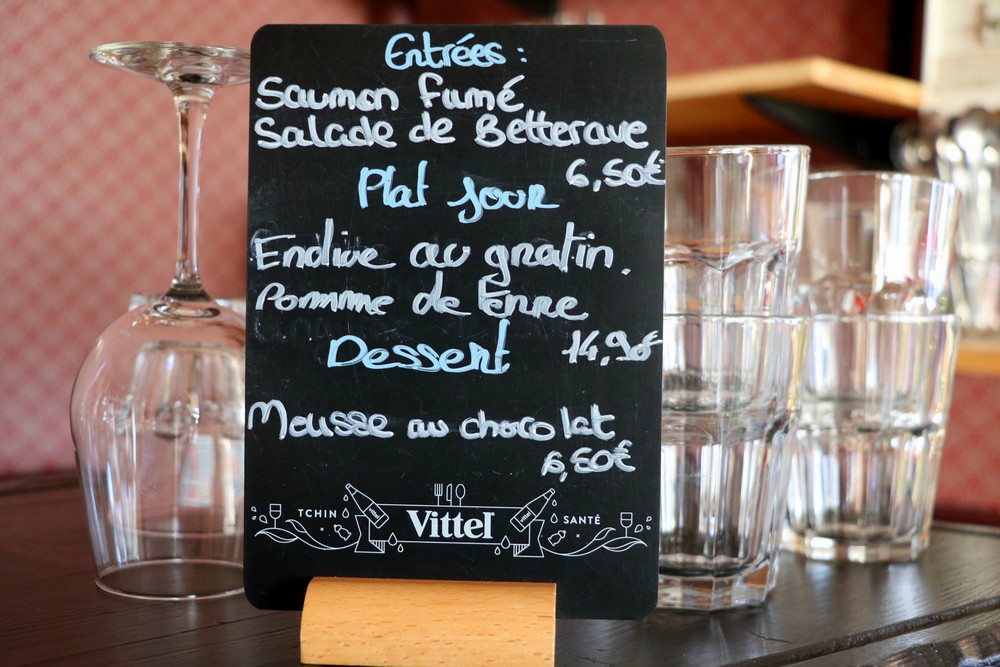 Entrées :
Saumon fumé
Salade de Betterave
6,50€
Plat jour
Endive au gratin.
Pomme de terre
14,90€
Dessert
Mousse au chocolat
6,50€
TCHIN
Vittel
SANTÉ